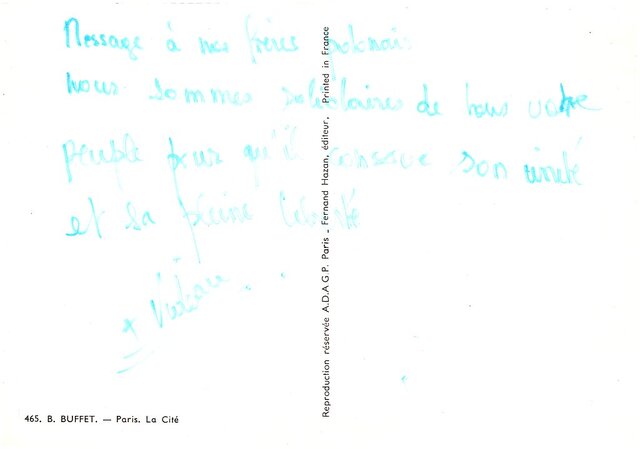 Message à nos frères polonais
nous sommes solidaires de tous votre
peuple pour qu'il conserve son unité
et sa pleine liberté
465. B. BUFFET. — Paris. La Cité
Reproduction réservée A.D.A.G.P. Paris - Fernand Hazan, éditeur. Printed in France